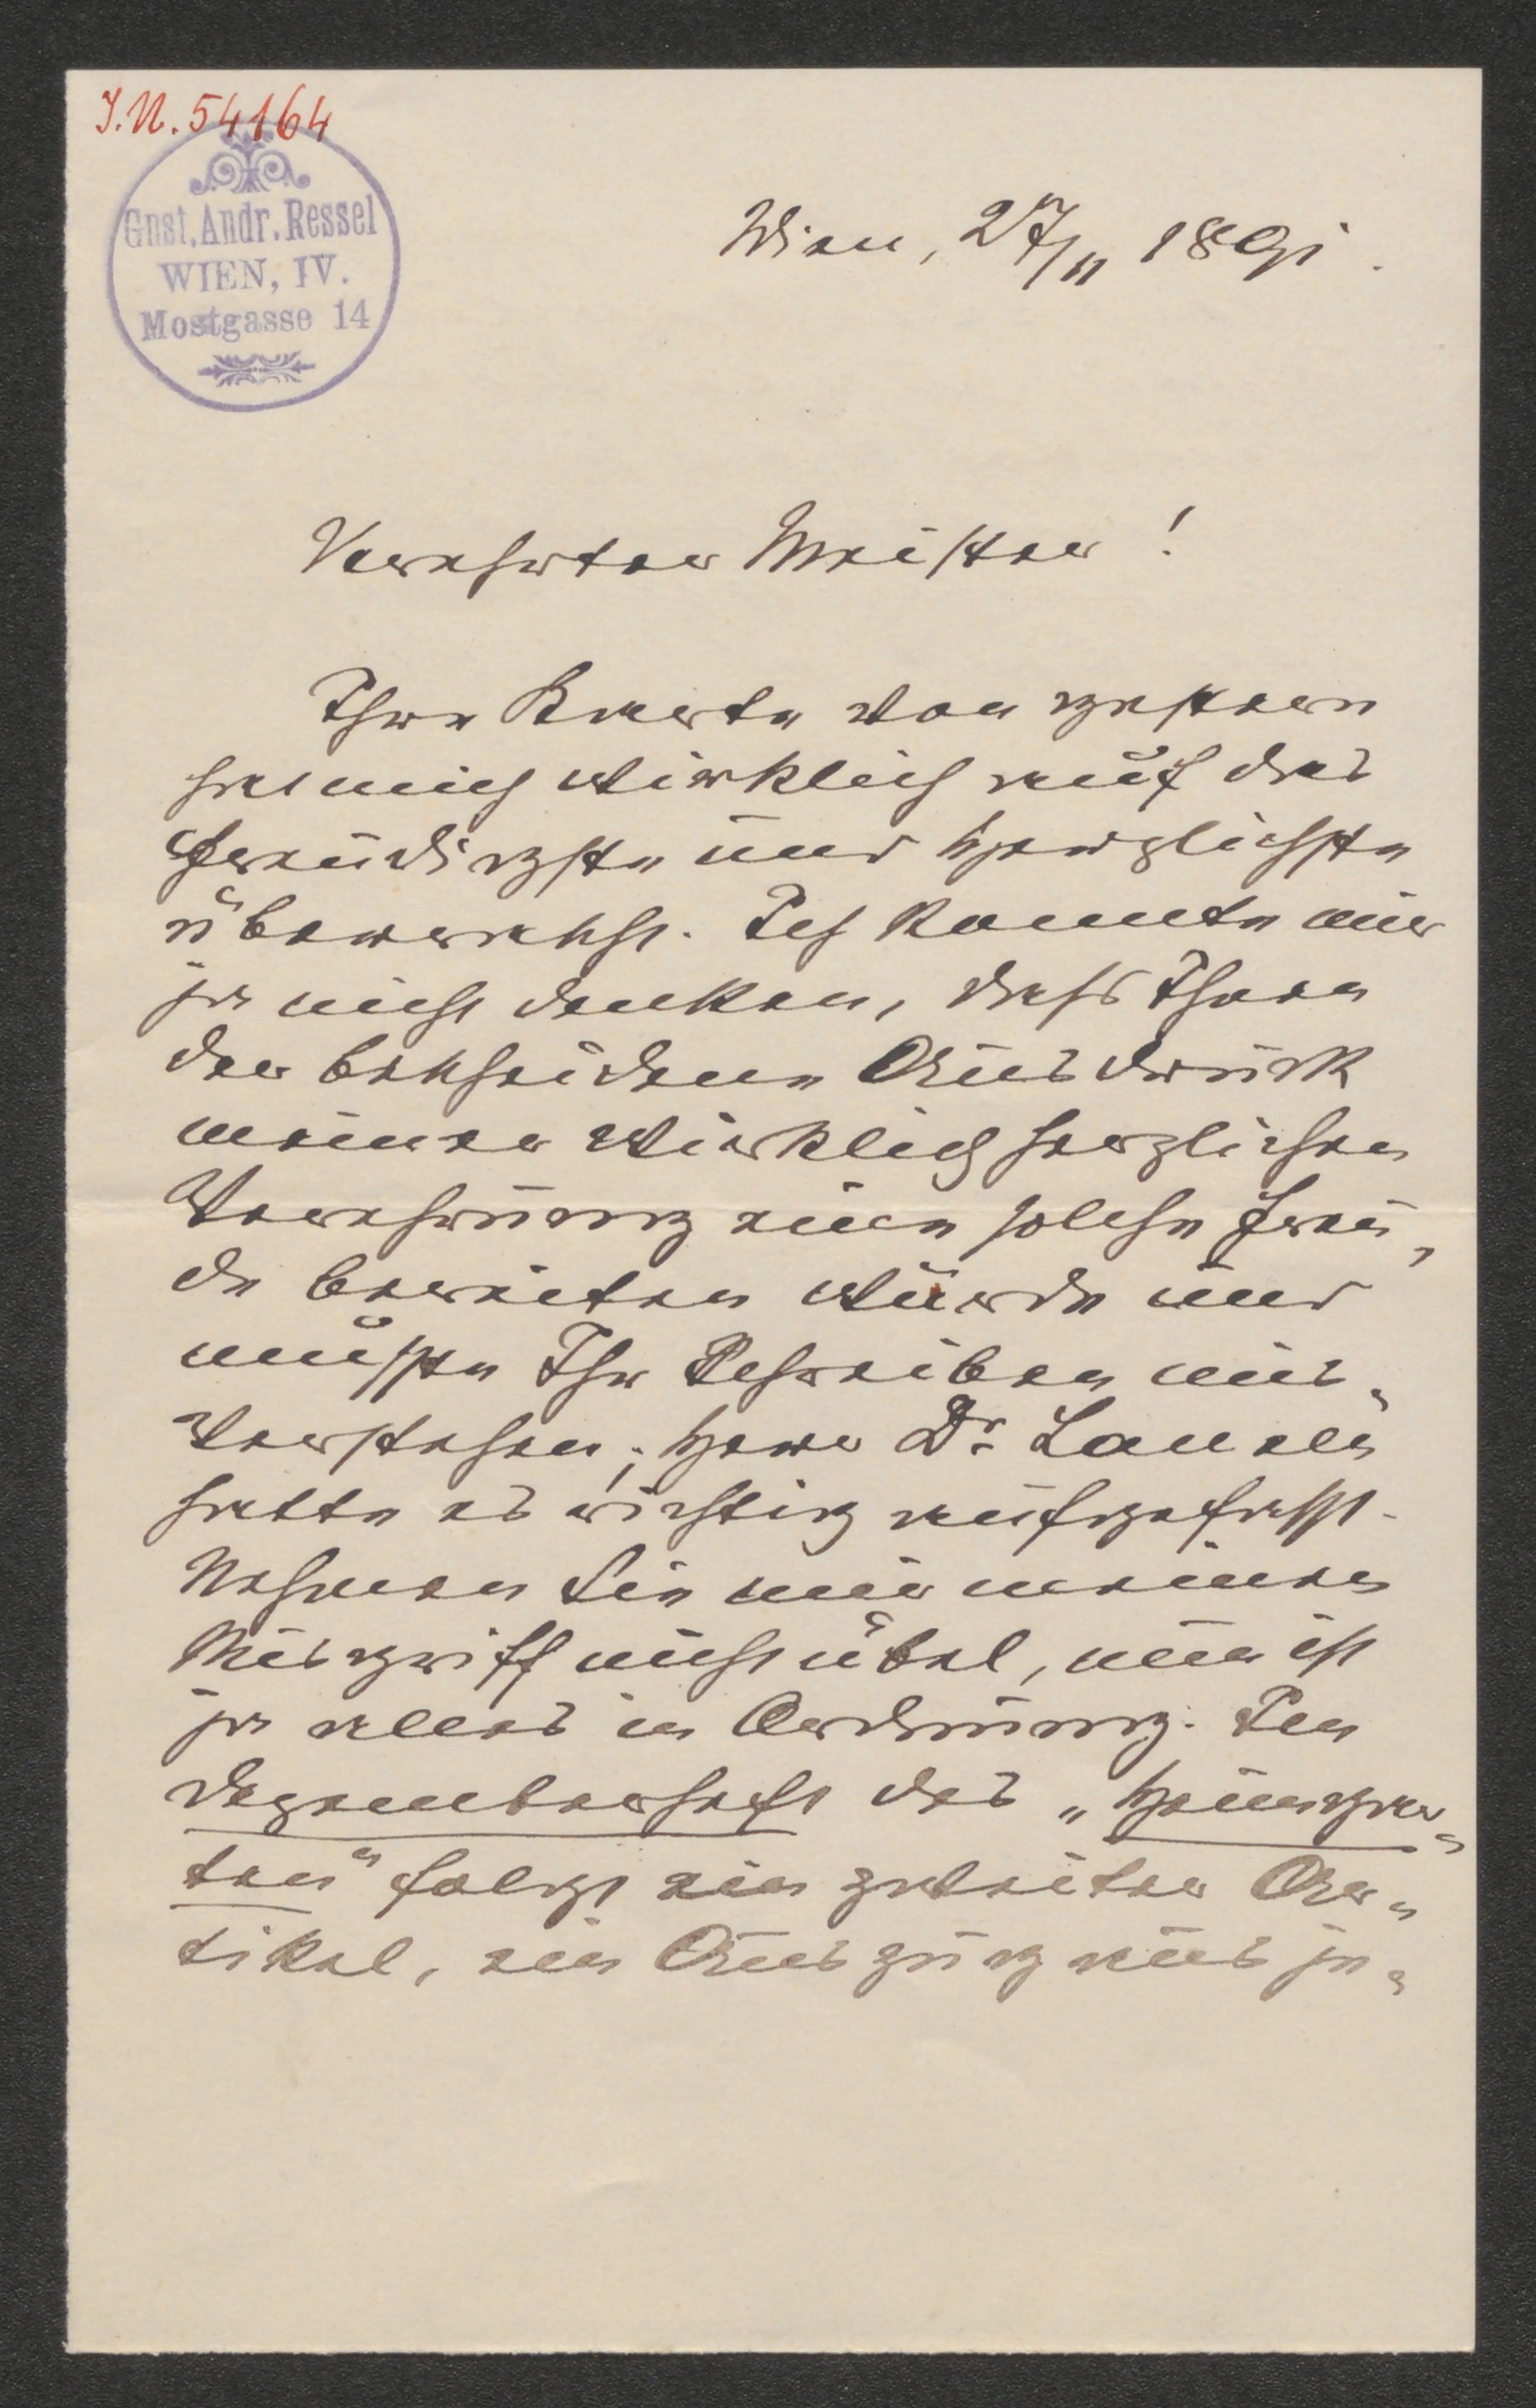 I.N. 54164
Gust. Andr. Ressel
WIEN, IV.
Mostgasse 14
Wien, 27/11 1891.
Verehrter Meister!
Ihre Karte von gestern
hat mich wirklich auf das
Freudigste und Herzlichste
überrascht. Ich konnte mir
ja nicht denken, dass Ihnen
der bescheidene Ausdruck
meiner wirklich herzlichen
Verehrung eine solche Freu-
de bereiten würde und
musste Ihr Schreiben mis-
verstehen; Herr Dr. Lauser
hatte es richtig aufgefasst.
Nehmen Sie mir meinen
Misgriff nicht übel, nun ist
ja alles in Ordnung. Im
Dezemberheft des „Heimgar-
ten" folgt ein zweiter Ar-
tikel, ein Auszug aus je-